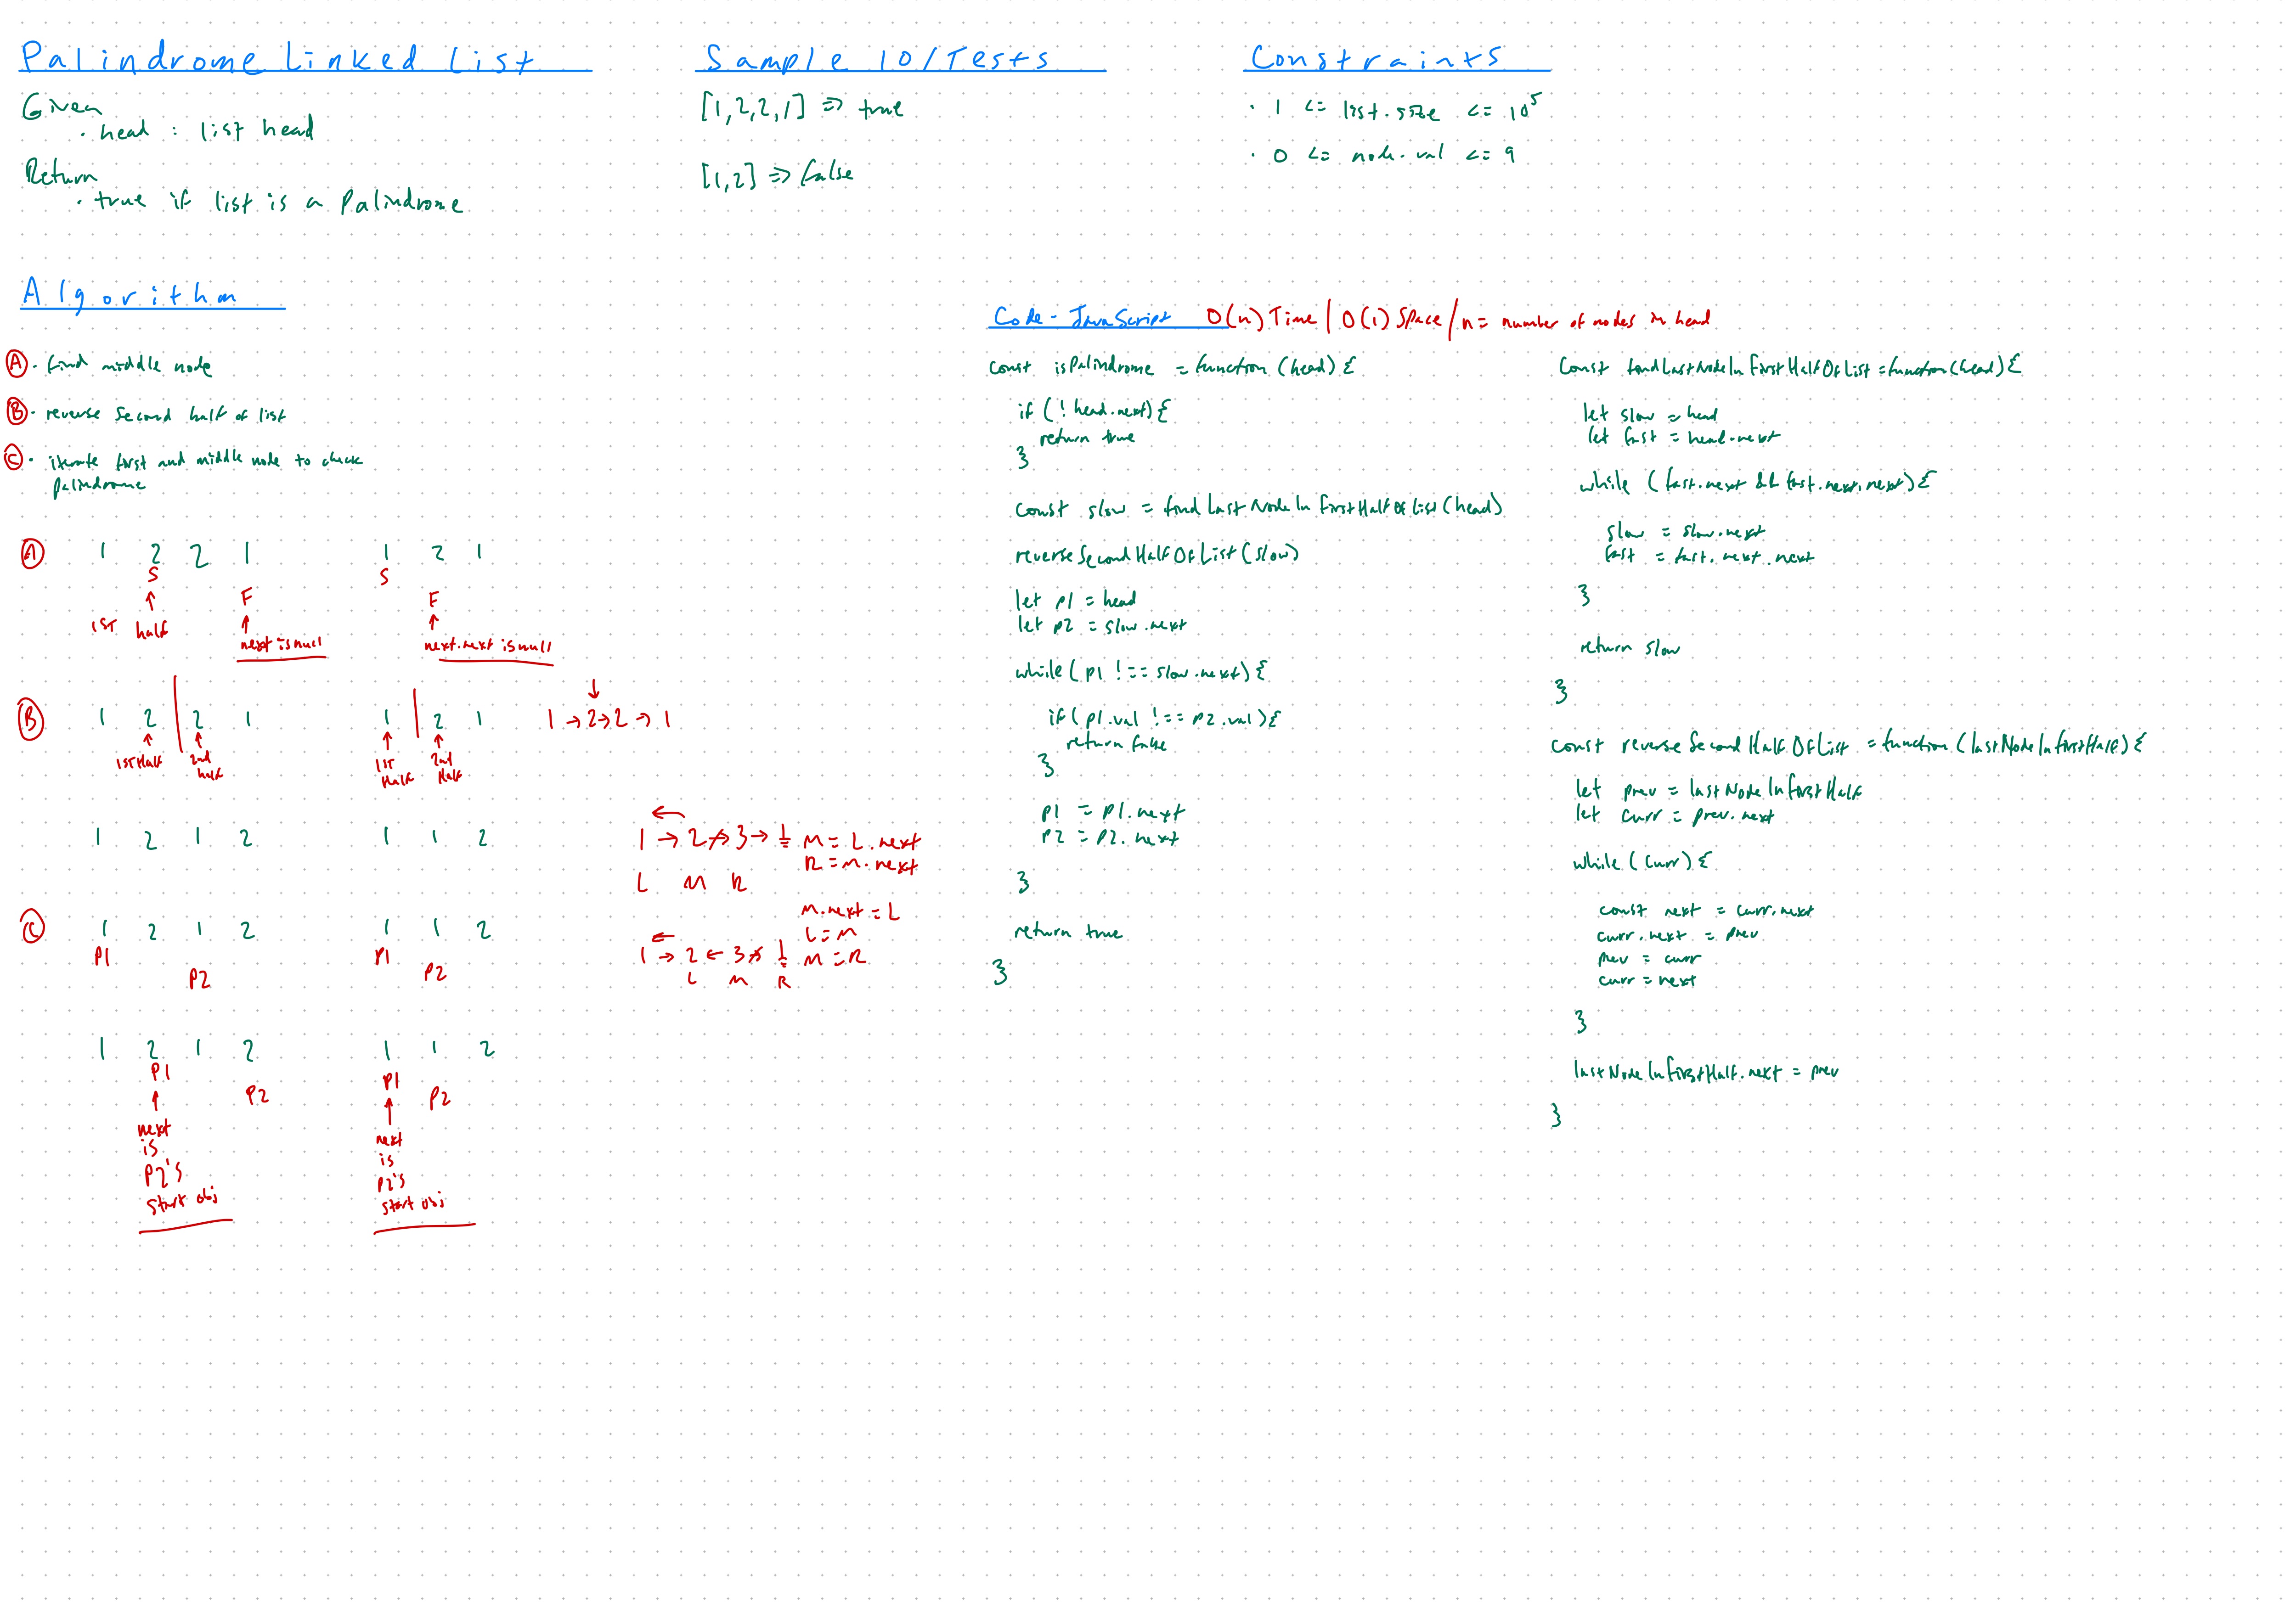 Palindrome Linked List
Given
· head : list head
Return
· true if list is a Palindrome
Sample IO/Tests
[1,2,2,1] => true
[1,2] => false
Constraints
· 1 <= list.size <= 10^5
· 0 <= node.val <= 9
Algorithm
A · find middle node
B · reverse second half of list
C · iterate first and middle node to check
palindrome
A 1 2 2 1 1 2 1
S S
F F
1ST half
next is null next.next is null
B 1 2 2 1 1 2 1 1 → 2 → 2 → 1
1ST Half 2nd half 1ST Half 2nd Half
1 2 1 2 1 1 2
1 → 2 → 3 → M = L.next
R = M.next
L M R
M.next = L
L = M
1 → 2 ← 3 → M = R
L M R
C 1 2 1 2 1 1 2
P1 P1
P2 P2
1 2 1 2 1 1 2
P1 P1
P2 P2
next
is
P2's
start obj
next
is
P2's
start obj
Code - JavaScript O(n) Time | O(1) Space / n = number of nodes in head
const isPalindrome = function (head) {
if (! head.next) {
return true
}
const slow = findLastNodeInFirstHalfOfList (head)
reverseSecondHalfOfList (slow)
let p1 = head
let p2 = slow.next
while ( p1 !== slow.next) {
if ( p1.val !== p2.val) {
return false
}
p1 = p1.next
p2 = p2.next
}
return true
}
const findLastNodeInFirstHalfOfList = function (head) {
let slow = head
let fast = head.next
while ( fast.next && fast.next.next) {
slow = slow.next
fast = fast.next.next
}
return slow
}
const reverseSecondHalfOfList = function (lastNodeInFirstHalf) {
let prev = lastNodeInFirstHalf
let curr = prev.next
while (curr) {
const next = curr.next
curr.next = prev
prev = curr
curr = next
}
lastNodeInFirstHalf.next = prev
}